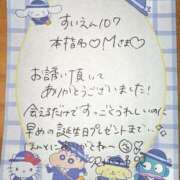 すいえん107
本指名♡Mさま♡
お誘い頂いて
ありがとうございました!
会えるだけですっごくうれしいのに
早めの誕生日プレゼントまで…
ありがとー